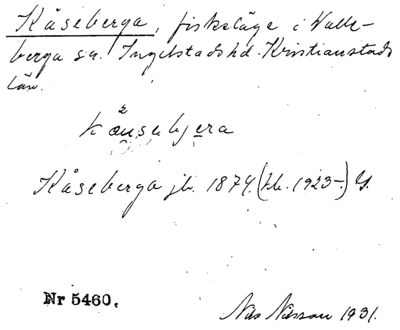 Kåseberga, fiskeläge i Valle-
berga sn. Ingelstads hd. Kristianstads
län.
Kåseberga jb. 1874. (hb. 1923-)
Nr 5460.
Nils Nilsson 1931.